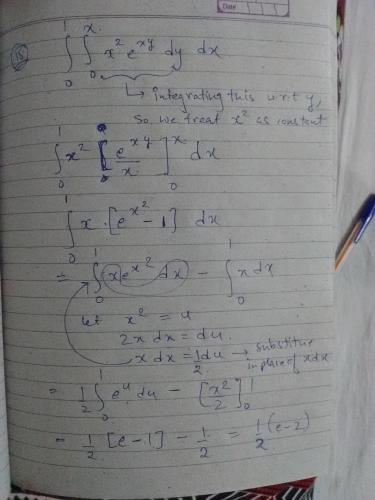 Date
(15) ∫₀¹ ∫₀ˣ x² e^{xy} dy dx
↳ integrating this w.r.t y,
So, we treat x² as constant
∫₀¹ x² [e^{xy}/x]₀ˣ dx
∫₀¹ x · [e^{x²} - 1] dx
= ∫₀¹ x e^{x²} dx - ∫₀¹ x dx
let x² = u
2x dx = du
x dx = 1/2 du → substitue
in place of x dx
= 1/2 ∫₀¹ e^u du - [x²/2]₀¹
= 1/2 [e - 1] - 1/2 = 1/2 (e-2)